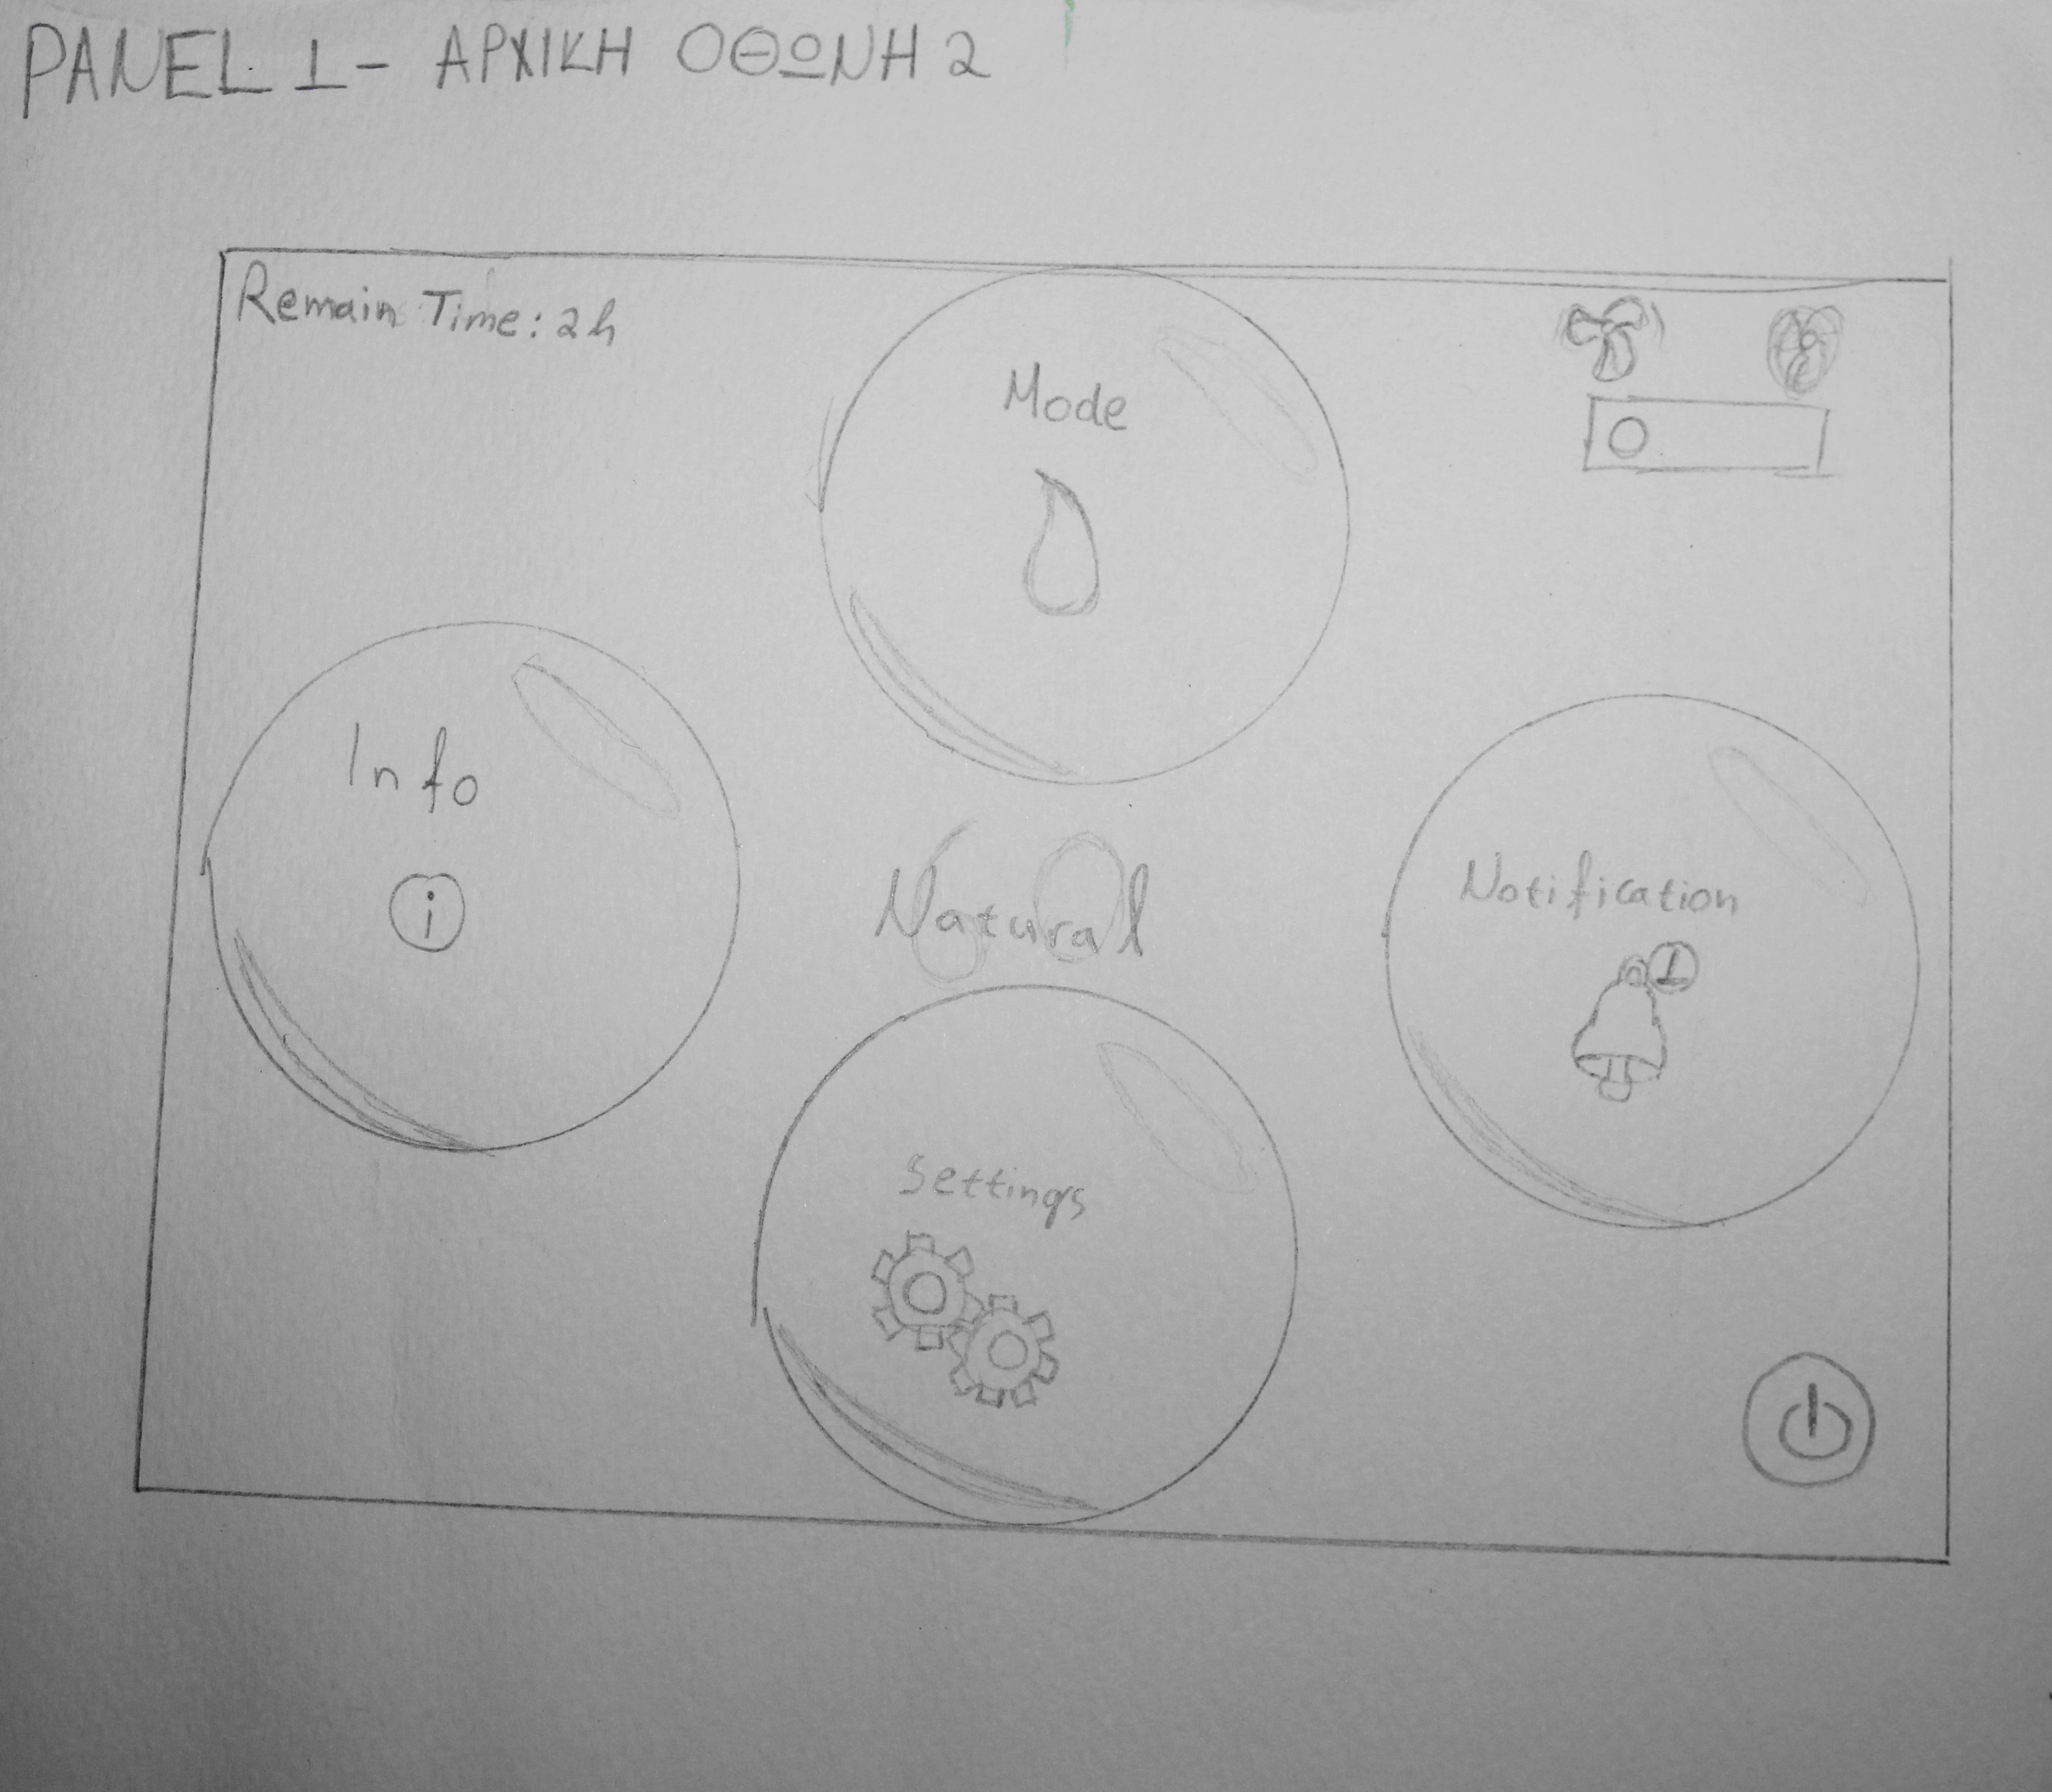 PANEL 1 - ΑΡΧΙΚΗ ΟΘΩΝΗ 2
Remain Time: 2h
Mode
Info
i
Natural
Notification
1
Settings